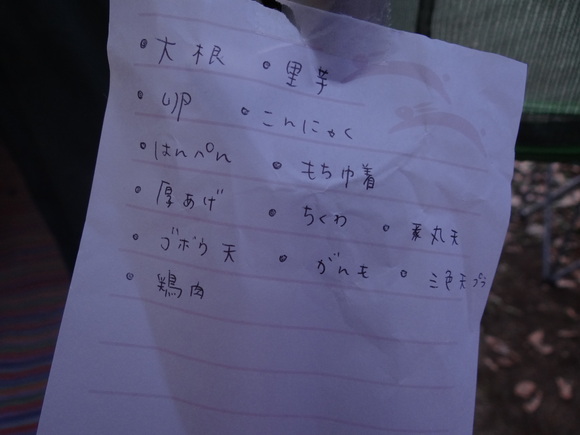 ・大根 ・里芋
・卵 ・こんにゃく
・はんぺん ・もち巾着
・厚あげ ・ちくわ ・ 丸天
・ゴボウ天 ・がんも ・三色天プラ
・鶏肉